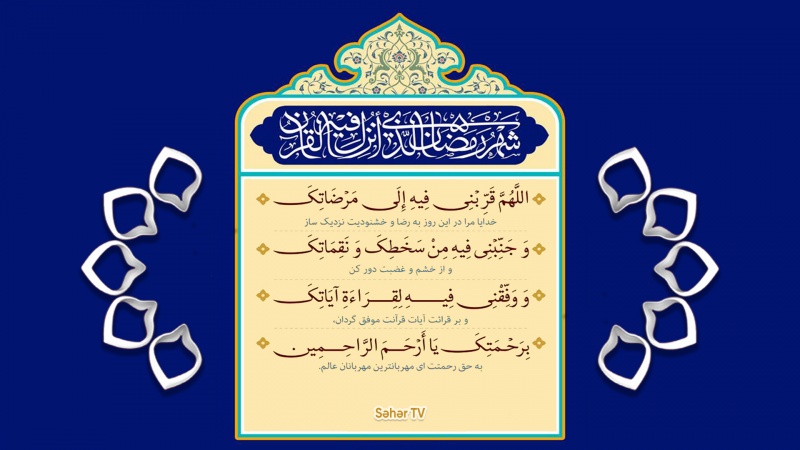 شهر رمضان الذي أنزل فيه القرآن
اللَّهُمَّ قَرِّبْنِی فِیهِ إِلَی مَرْضَاتِکَ
خدایا مرا در این روز به رضا و خشنودیت نزدیک ساز
وَ جَنِّبْنِی فِیهِ مِنْ سَخَطِکَ وَ نَقِمَاتِکَ
و از خشم و غضبت دور کن
وَ وَفِّقْنِی فِیهِ لِقِرَاءَةِ آیَاتِکَ
و بر قرائت آیات قرآنت موفق گردان،
بِرَحْمَتِکَ یَا أَرْحَمَ الرَّاحِمِینَ
به حق رحمتت ای مهربانترین مهربانان عالم.
Səhər TV